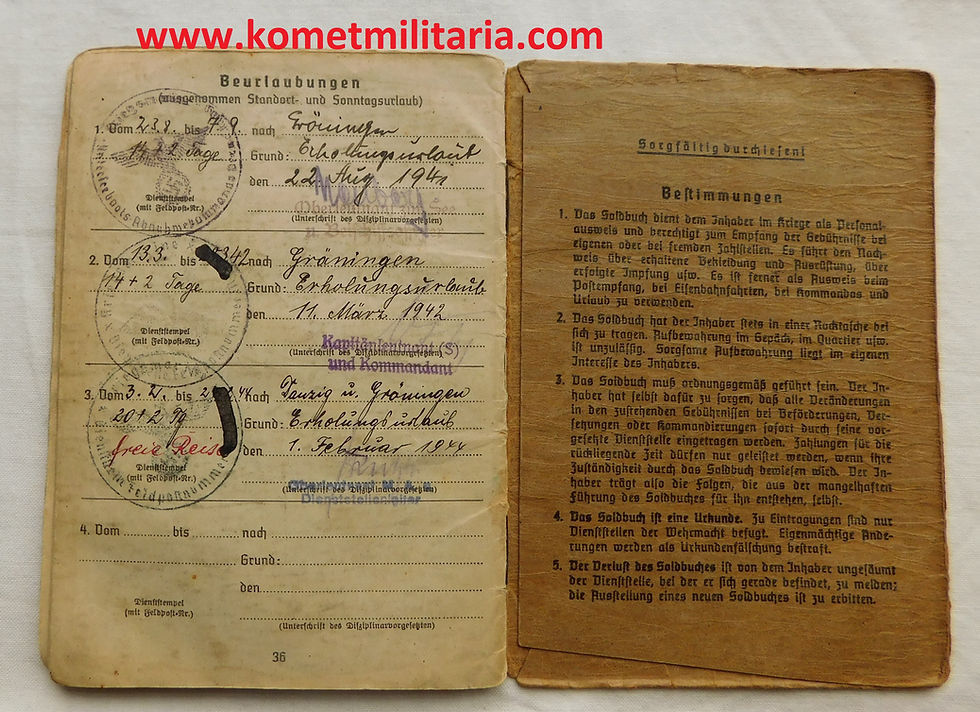 www.kometmilitaria.com
Beurlaubungen
(ausgenommen Standort- und Sonntagsurlaub)
1. Vom 23.8. bis 7.9. nach Gröningen
14 + 2 Tage Grund: Erholungsurlaub
den 22. Aug. 1941
Dienststempel
(mit Feldpost-Nr.)
(Unterschrift des Disziplinarvorgesetzten)
2. Vom 13.3. bis 42 nach Gröningen
14 + 2 Tage Grund: Erholungsurlaub
den 11. März 1942
Dienststempel
(mit Feldpost-Nr.)
Kapitänleutnant (S)
und Kommandant
(Unterschrift des Disziplinarvorgesetzten)
3. Vom 3.2. bis 44 nach Danzig u. Gröningen
20 + 2 Tg Grund: Erholungsurlaub
freie Reise den 1. Februar 1944
Dienststempel
(mit Feldpost-Nr.)
Dienststellenleiter
(Unterschrift des Disziplinarvorgesetzten)
4. Vom bis nach
Grund:
den
Dienststempel
(mit Feldpost-Nr.)
(Unterschrift des Disziplinarvorgesetzten)
36
Sorgfältig durchlesen!
Bestimmungen
1. Das Soldbuch dient dem Inhaber im Kriege als Personal-
ausweis und berechtigt zum Empfang der Gebührnisse bei
eigenen oder bei fremden Zahlstellen. Es führt den Nach-
weis über erhaltene Bekleidung und Ausrüstung, über
erfolgte Impfung usw. Es ist ferner als Ausweis beim
Postempfang, bei Eisenbahnfahrten, bei Kommandos und
Urlaub zu verwenden.
2. Das Soldbuch hat der Inhaber stets in einer Rocktasche bei
sich zu tragen. Aufbewahrung im Gepäck, im Quartier usw.
ist unzulässig. Sorgsame Aufbewahrung liegt im eigenen
Interesse des Inhabers.
3. Das Soldbuch muß ordnungsgemäß geführt sein. Der In-
haber hat selbst dafür zu sorgen, daß alle Veränderungen
in den zustehenden Gebührnissen bei Beförderungen, Ver-
setzungen oder Kommandierungen sofort durch seine vor-
gesetzte Dienststelle eingetragen werden. Zahlungen für die
rückliegende Zeit dürfen nur geleistet werden, wenn ihre
Zuständigkeit durch das Soldbuch bewiesen wird. Der In-
haber trägt also die Folgen, die aus der mangelhaften
Führung des Soldbuches für ihn entstehen, selbst.
4. Das Soldbuch ist eine Urkunde. Zu Eintragungen sind nur
Dienststellen der Wehrmacht befugt. Eigenmächtige Ände-
rungen werden als Urkundenfälschung bestraft.
5. Der Verlust des Soldbuches ist von dem Inhaber ungesäumt
der Dienststelle, bei der er sich gerade befindet, zu melden;
die Ausstellung eines neuen Soldbuches ist zu erbitten.